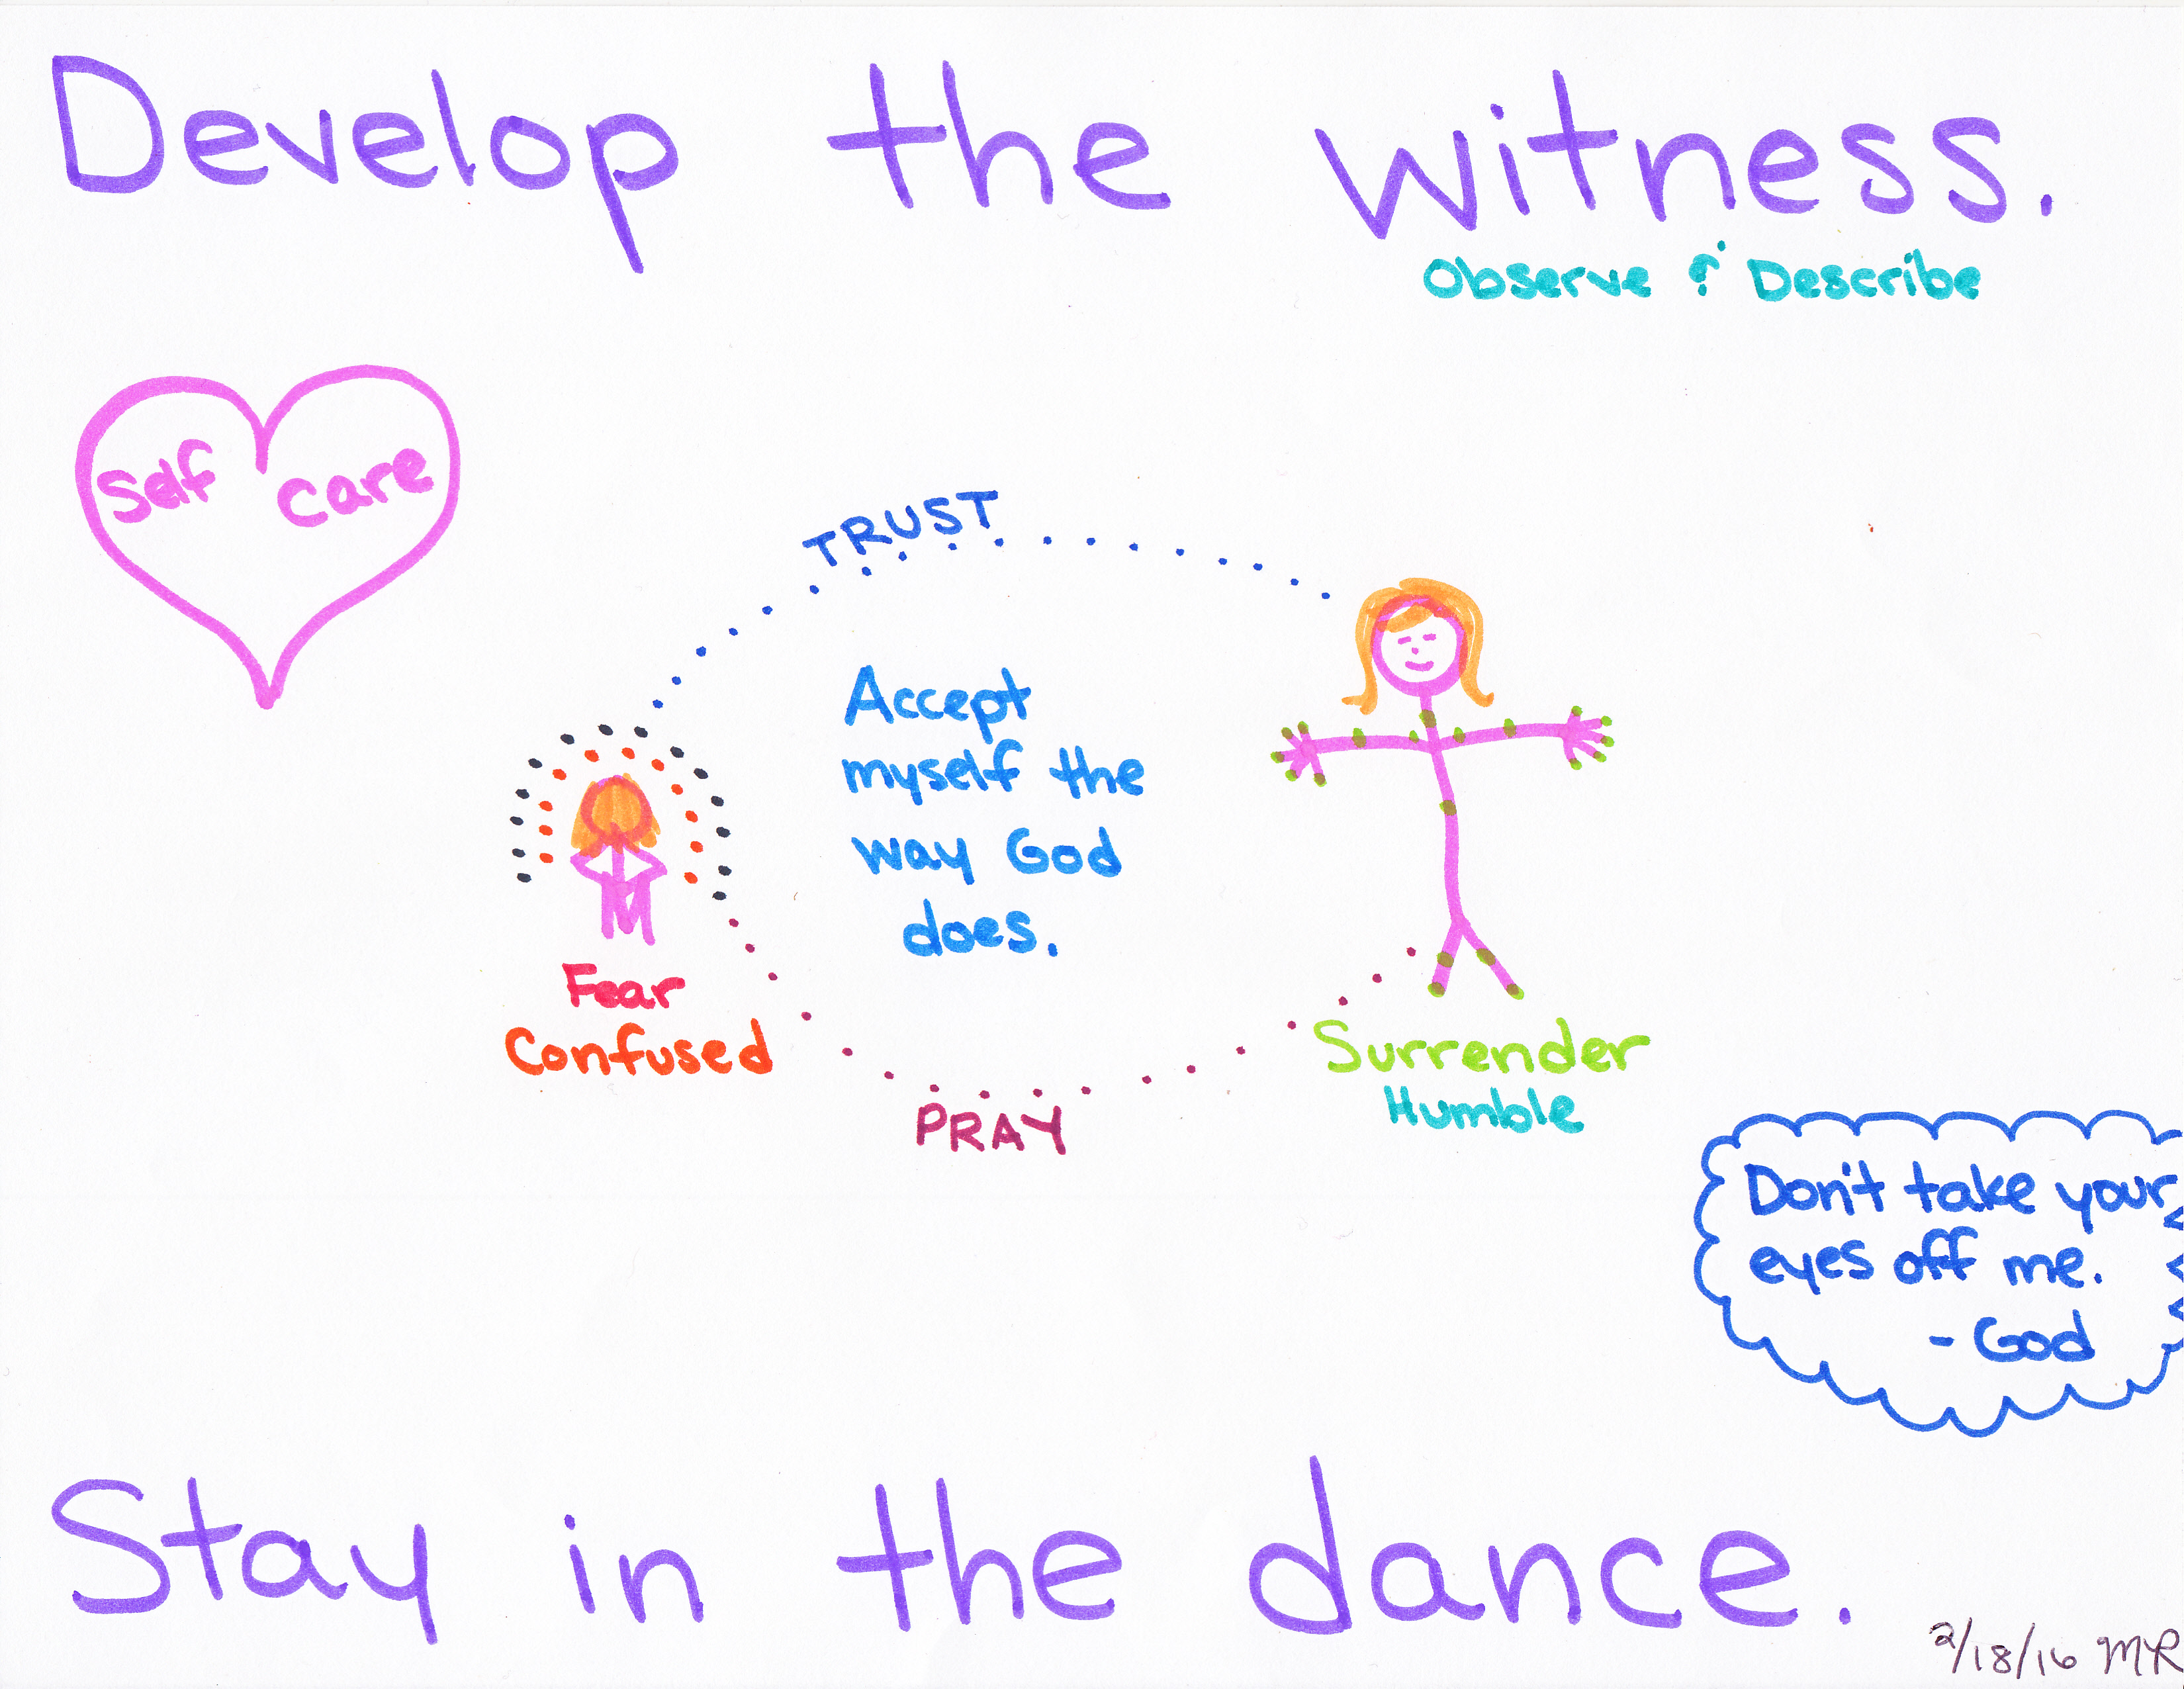 Develop the witness.
Observe & Describe
Self Care
TRUST
Accept
myself the
way God
does.
Fear
Confused
PRAY
Surrender
Humble
Don't take your
eyes off me.
- God
Stay in the dance.
2/18/16 MR